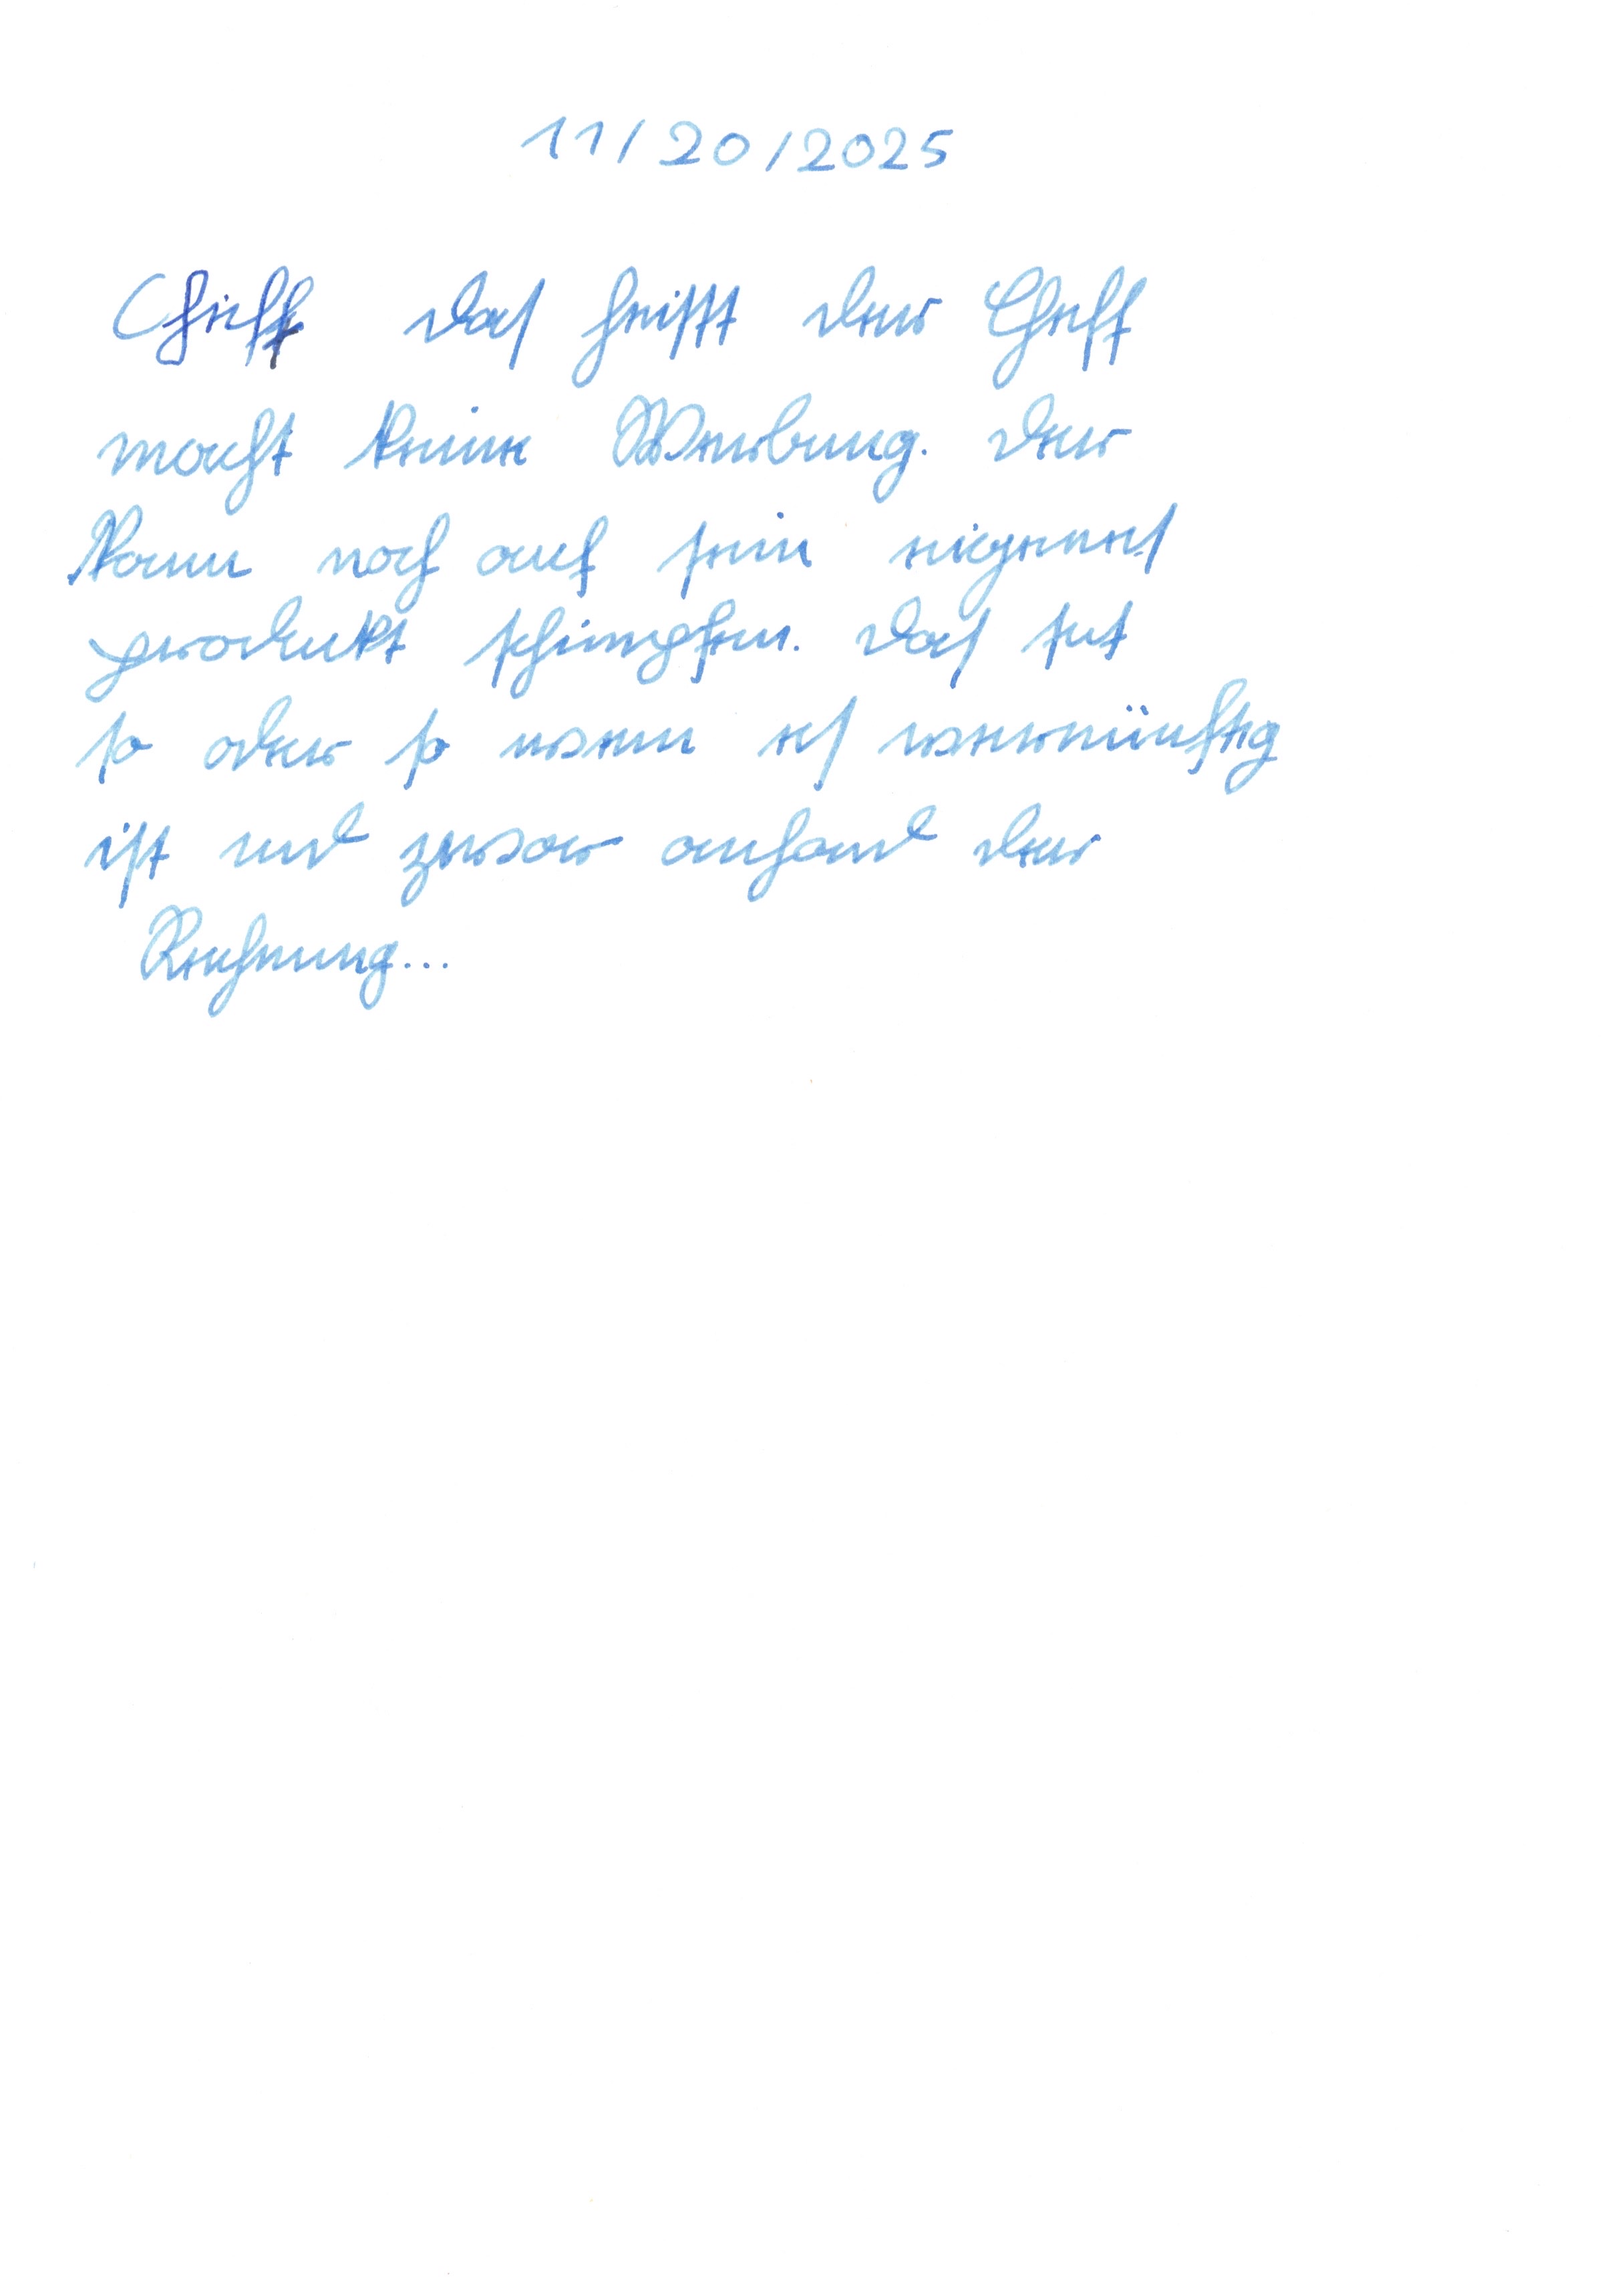 11/20/2025
Chiff das heisst der Cheff
macht keine Werbung. der
kann noch auf sein eigenes
produkt schimpfen. das tut
so oder so wenn es vernünftig
ist und zwar anhand der
Rechnung...